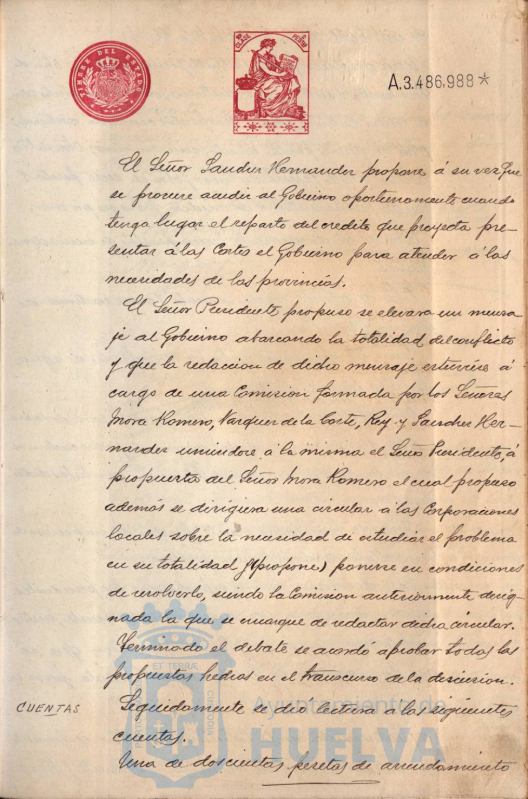 TIMBRE DEL ESTADO
CLASE
A.3.486,988*
El Señor Sanchez Hernandez propone á su vez que
se procure acudir al Gobierno oportunamente cuando
tenga lugar el reparto del credito que proyecta pre-
sentar á las Cortes el Gobierno para atender á las
necesidades de las provincias.
El Señor Presidente propuso se elevara un mensa
je al Gobierno abarcando la totalidad del conflicto
y que la redaccion de dicho mensaje estuviese á
cargo de una Comision formada por los Señores
Mora Romero, Vazquez de la Corte, Rey y Sanchez Her-
nandez uniendose á la misma el Señor Presidente, á
propuesta del Señor Mora Romero el cual propuso
además se dirigiera una circular á las Corporaciones
locales sobre la necesidad de estudiar el problema
en su totalidad y (propone) ponerse en condiciones
de resolverlo, siendo la Comision anteriormente desig-
nada la que se encargue de redactar dicha circular.
Terminado el debate se acordó aprobar todas las
propuestas hechas en el transcurso de la discusion.
CUENTAS
Seguidamente se dio lectura a las siguientes
cuentas.
Una de doscientas pesetas de arrendamiento
Ayuntamiento de
HUELVA